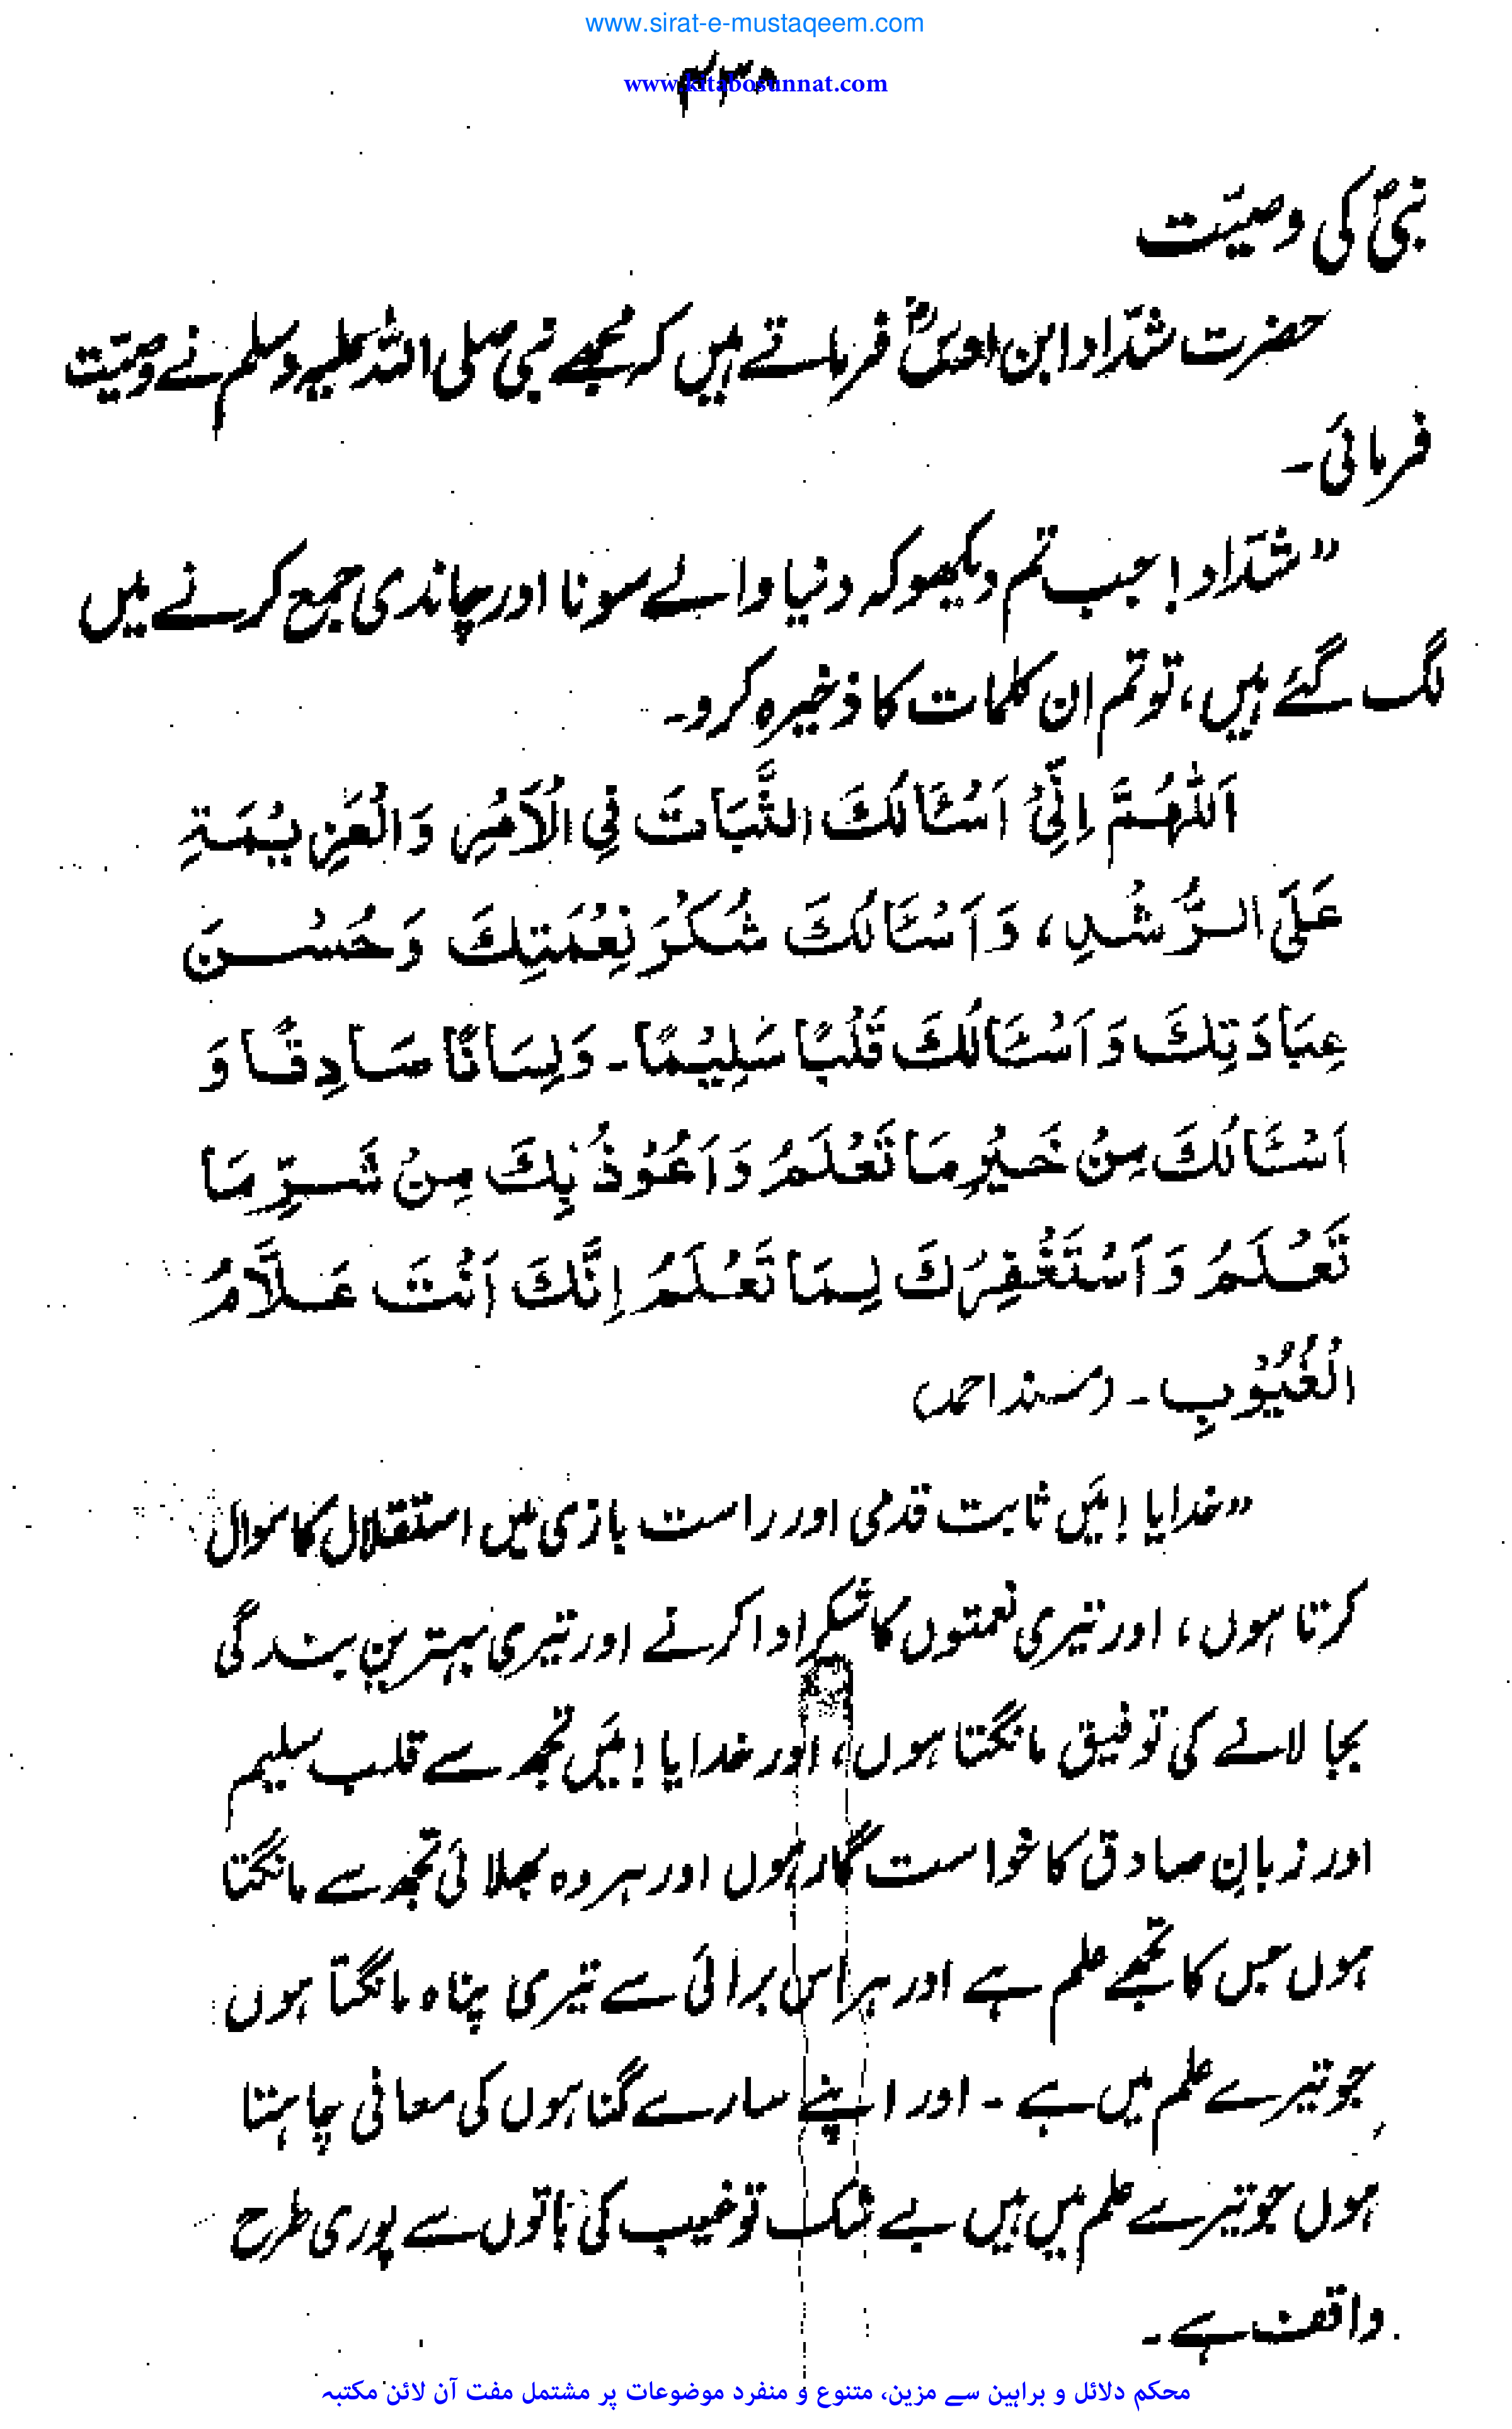 www.sirat-e-mustaqeem.com
۴۳۰
www.kitabosunnat.com
نبیؐ کی وصیّت
حضرت شدّاد ابن اوسؓ فرماتے ہیں کہ مجھے نبی صلی اللہ علیہ وسلم نے وصیّت
فرمائی۔
”شدّاد! جب تم دیکھو کہ دنیا والے سونا اور چاندی جمع کرنے میں
لگ گئے ہیں، تو تم ان کلمات کا ذخیرہ کرو۔
اَللّٰهُمَّ اِنِّیْ اَسْئَالُكَ الثَّبَاتَ فِی الْاَمْرِ وَالْعَزِیْمَةِ
عَلَی الرُّشْدِ، وَاَسْئَالُكَ شُكْرَ نِعْمَتِكَ وَحُسْنَ
عِبَادَتِكَ وَاَسْئَالُكَ قَلْبًا سَلِیْمًا۔ وَلِسَانًا صَادِقًا وَ
اَسْئَالُكَ مِنْ خَیْرِ مَا تَعْلَمُ وَاَعُوْذُ بِكَ مِنْ شَرِّ مَا
تَعْلَمُ وَاَسْتَغْفِرُكَ لِمَا تَعْلَمُ اِنَّكَ اَنْتَ عَلَّامُ
الْغُیُوْبِ۔ (مسند احمد)
”خدایا! مَیں ثابت قدمی اور راست بازی میں استقلال کا سوال
کرتا ہوں، اور تیری نعمتوں کا شکر ادا کرنے اور تیری بہترین بندگی
بجا لانے کی توفیق مانگتا ہوں، اور خدایا! مَیں تجھ سے قلب سلیم
اور زبانِ صادق کا خواست گار ہوں اور ہر وہ بھلائی تجھ سے مانگتا
ہوں جس کا تجھے علم ہے اور ہر اس برائی سے تیری پناہ مانگتا ہوں
جو تیرے علم میں ہے۔ اور اپنے سارے گناہوں کی معافی چاہتا
ہوں جو تیرے علم میں ہیں بے شک تو غیب کی باتوں سے پوری طرح
واقف ہے۔
محکم دلائل و براہین سے مزین، متنوع و منفرد موضوعات پر مشتمل مفت آن لائن مکتبہ